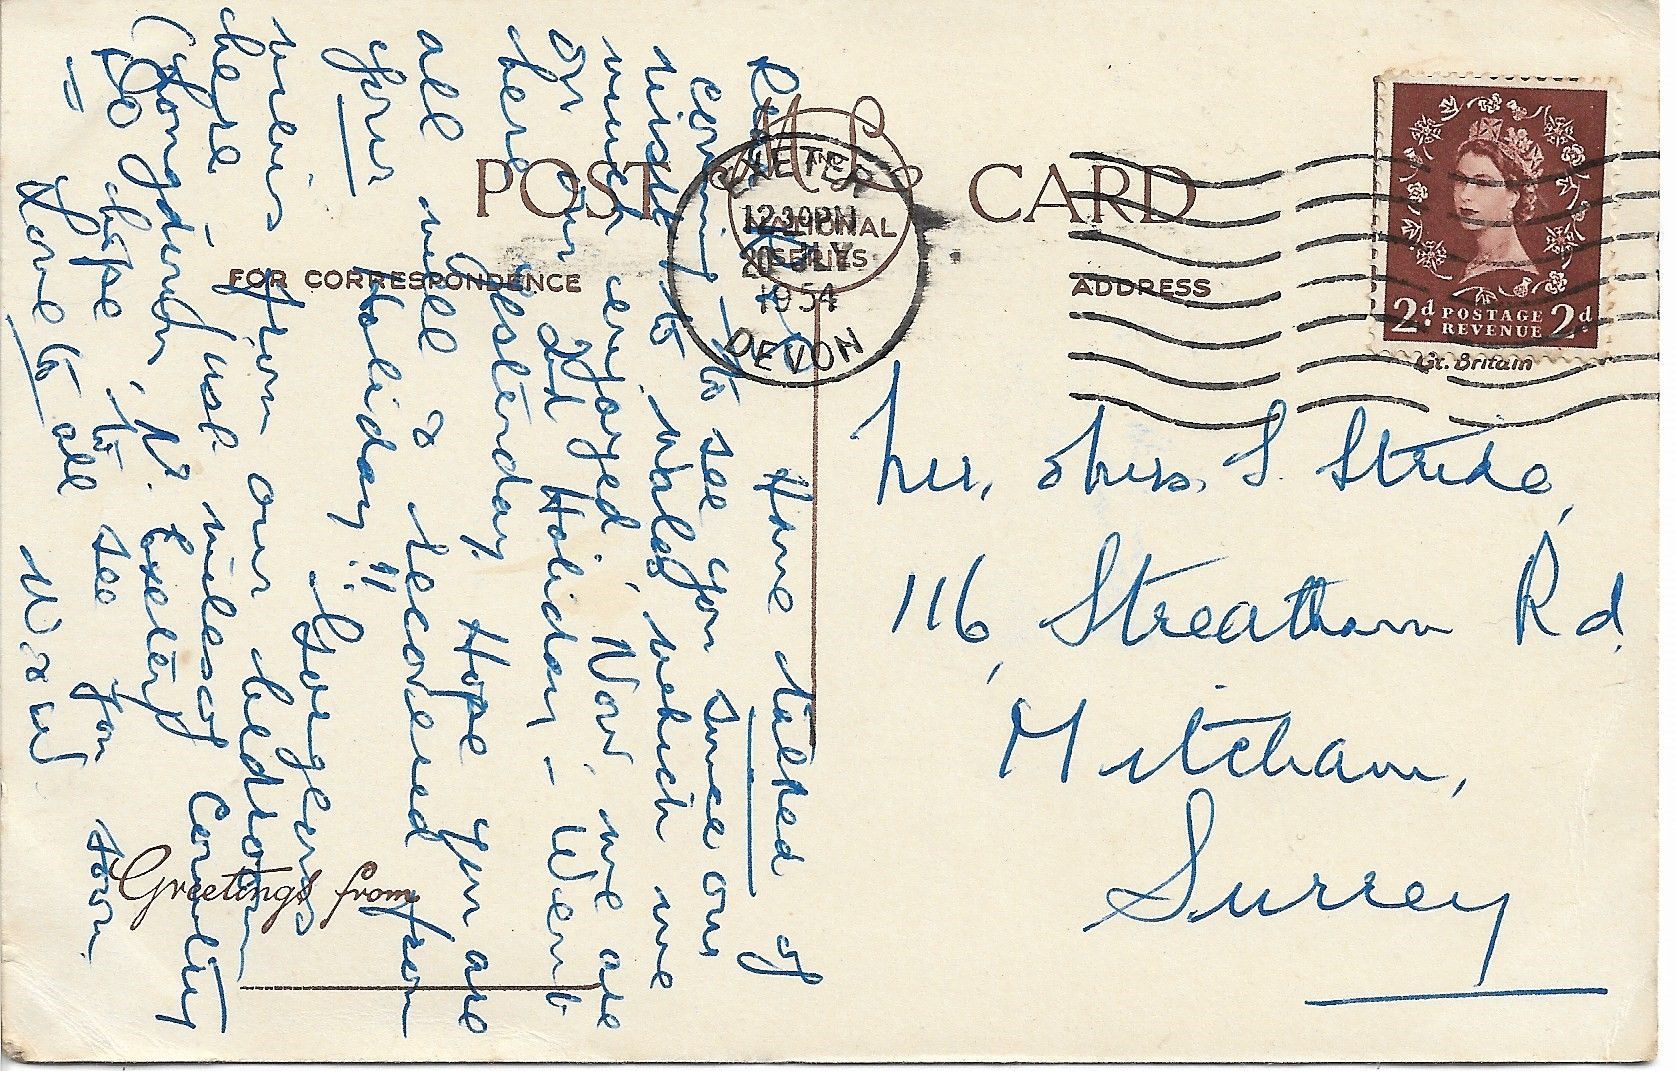 POST CARD
M AND L
NATIONAL
SERIES
FOR CORRESPONDENCE
ADDRESS
EXETER
12 30 PM
20 JLY
1954
DEVON
2d POSTAGE 2d
REVENUE
Gt. Britain
Mr. & Mrs. S. Stride,
116, Streatham Rd
Mitcham,
Surrey
Have talked of
coming to see you since our
visit to Wales which we
much enjoyed. Now we are
on our 2nd Holiday – Went
here yesterday. Hope you are
all well & recovered from
your Holiday!!
Gorgeous
views from our bedroom
here just miles of country
(Longdown, Nr. Exeter)
So hope to see you soon.
Love to all
W & W
Greetings from